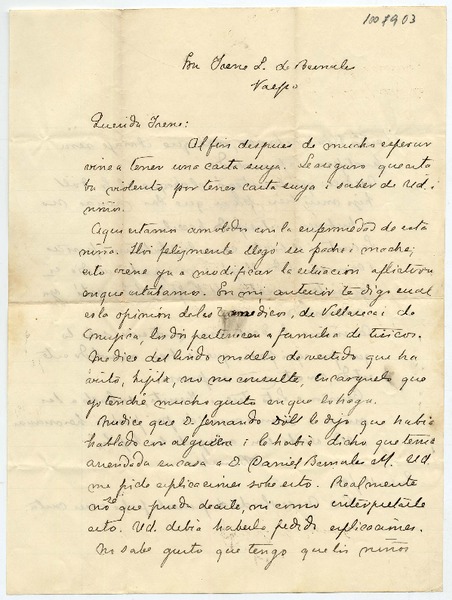 1007903
Sra Irene L. de Bernales
Valpso
Querida Irene:
Al fin despues de mucho esperar
vine a tener una carta suya. Le aseguro que esta
ba violento por tener carta suya i saber de Ud. i
niños.
Aqui estamos amolados con la enfermedad de esta
niña. Hoi felizmente llegó su padre i madre;
esto viene ya a modificar la situacion aflictiva
en que estábamos. En mi anterior te digo cual
es la opinion de los médicos, de Villaseca i de
Mujica, los dos pertenecen a familia de tísicos.
Me dice del lindo modelo de vestido que ha
visto, hijita, no me consulte, encarguelo que
yo tendré mucho gusto en que lo haga.
Me dice que D. Fernando le dijo que habia
hablado con alguien i le habia dicho que tenia
arrendada su casa a D. Daniel Bernales M. Ud.
me pide esplicaciones sobre esto. Realmente
no se que pueda decirle, ni como interpretarle
esto. Ud. debia haberle pedido esplicaciones.
No sabe gusto que tengo que los niños